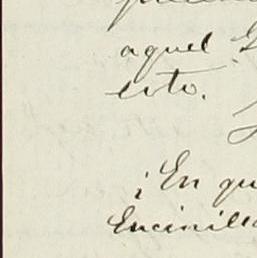 aquel
esto.
¡En qu
Encinill